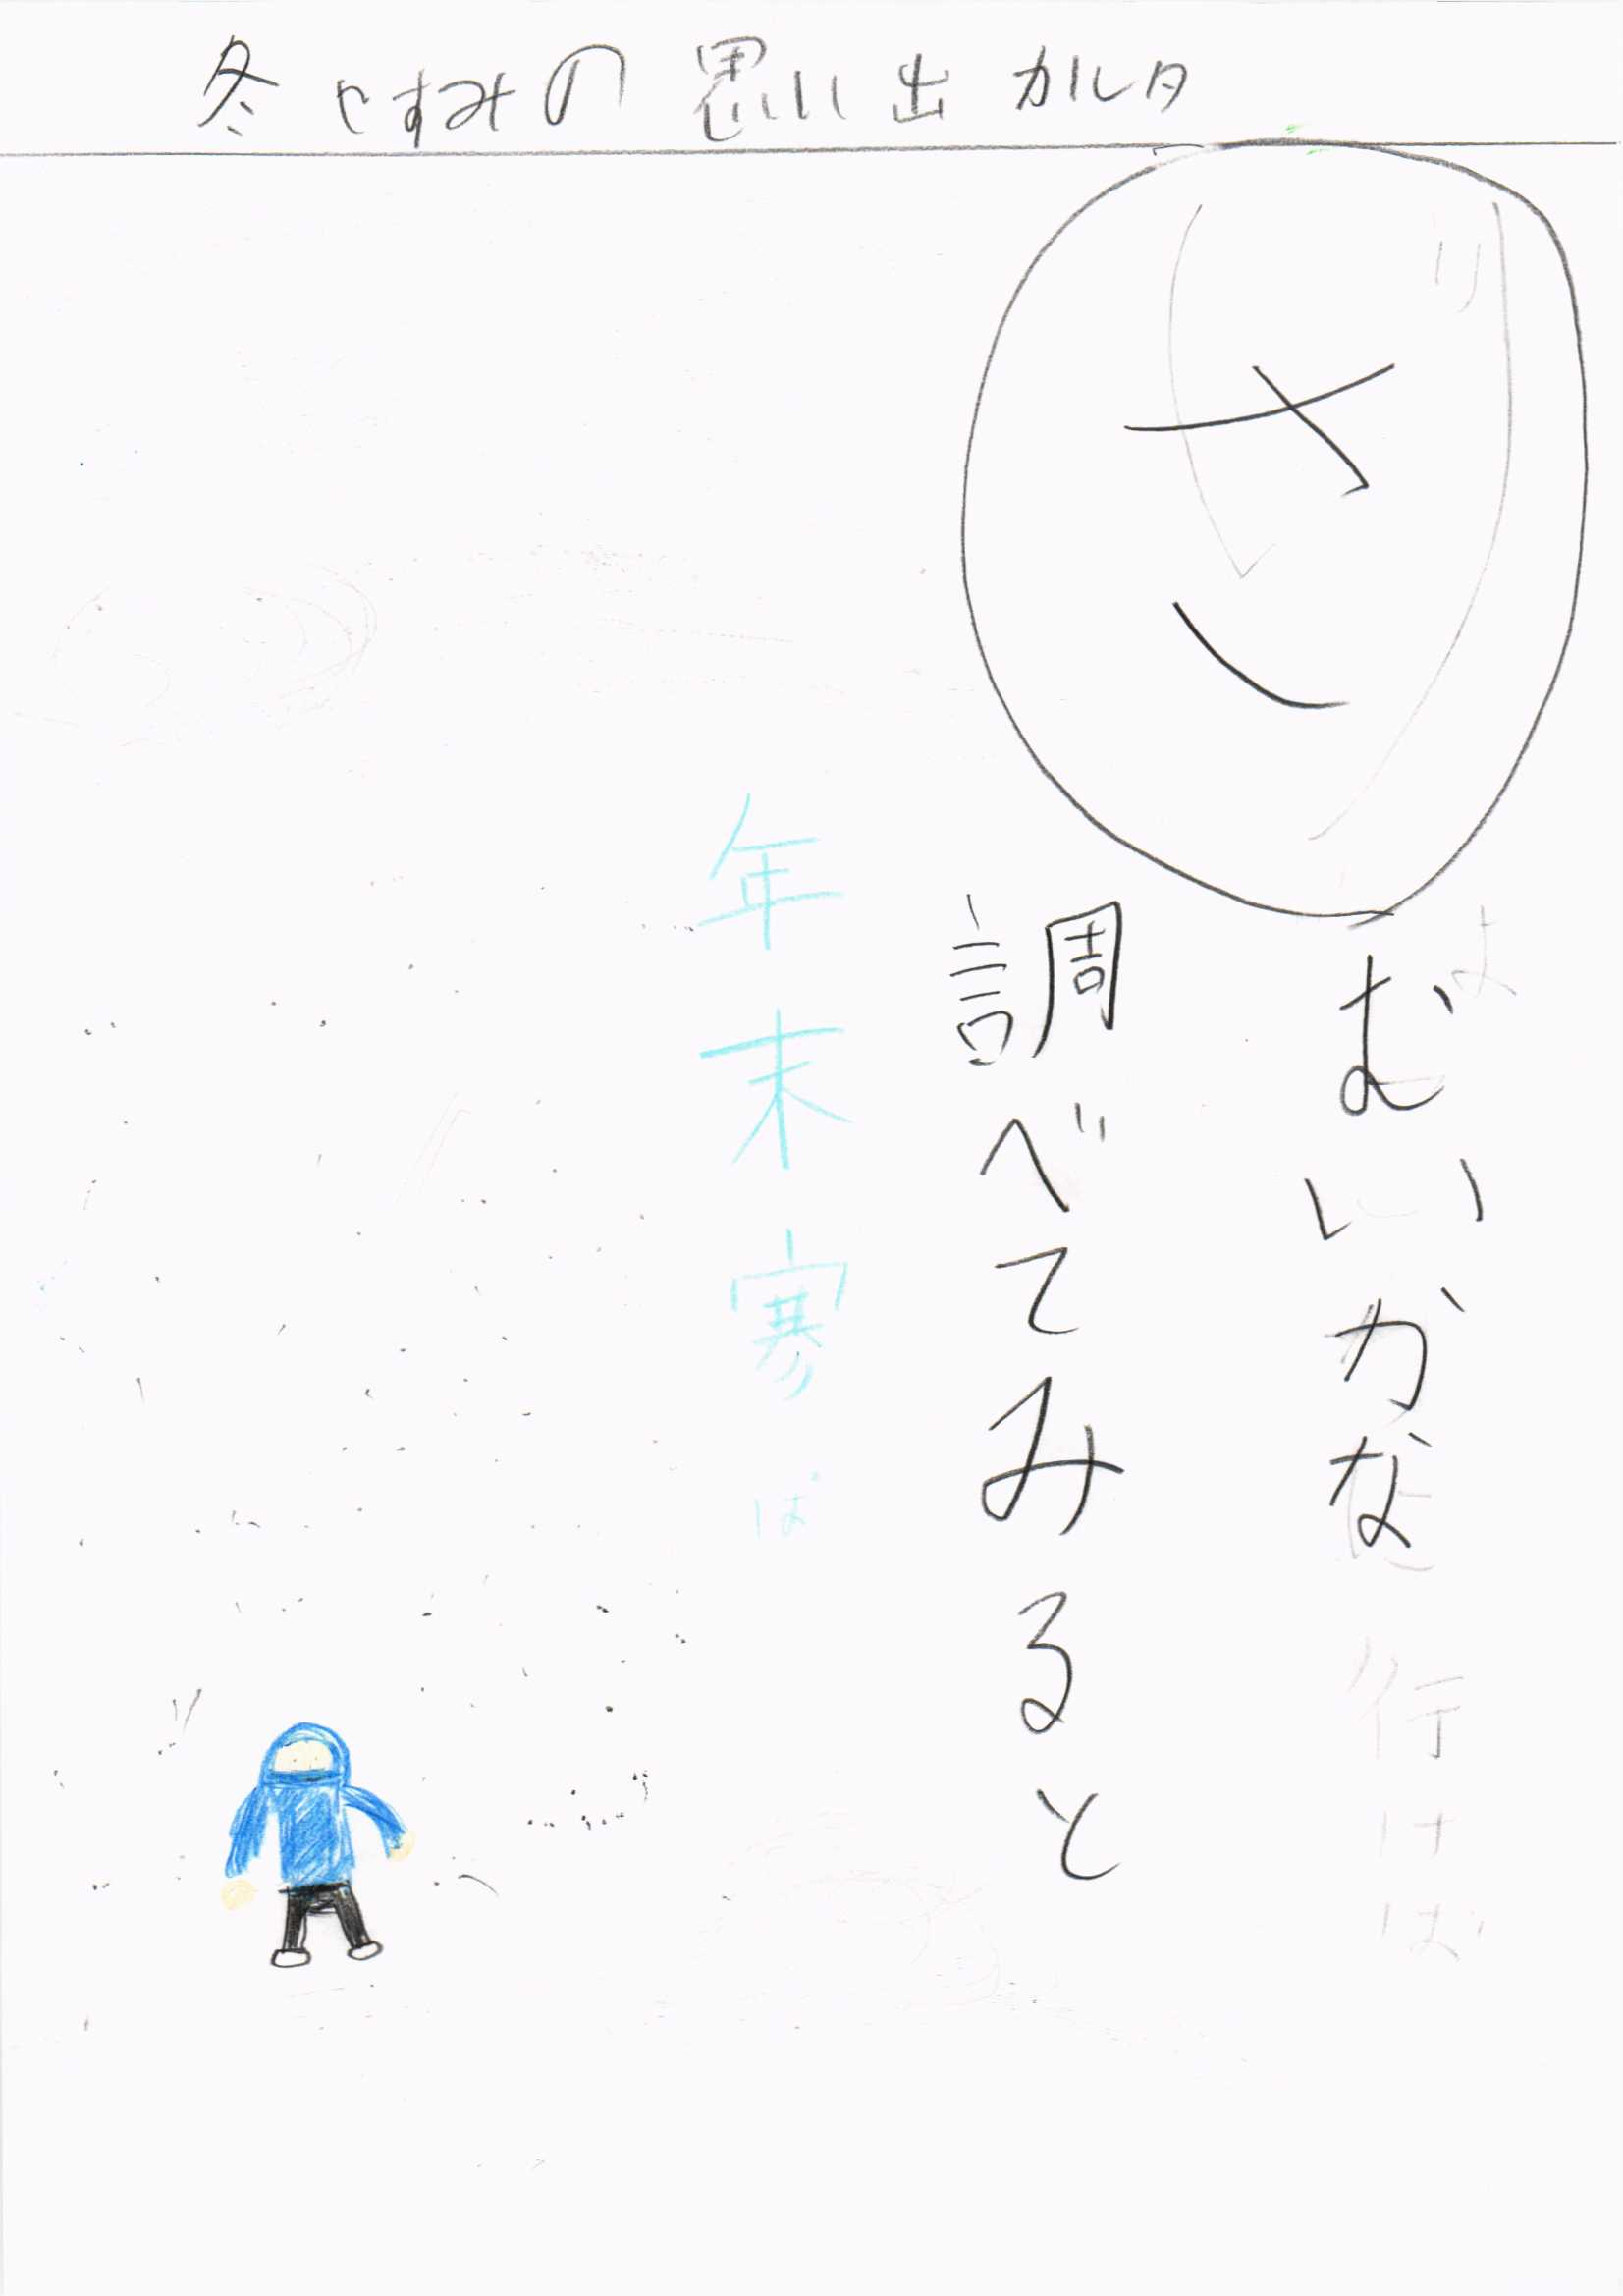 冬やすみの思い出カルタ
さ
むいかな
調べてみると
年末寒